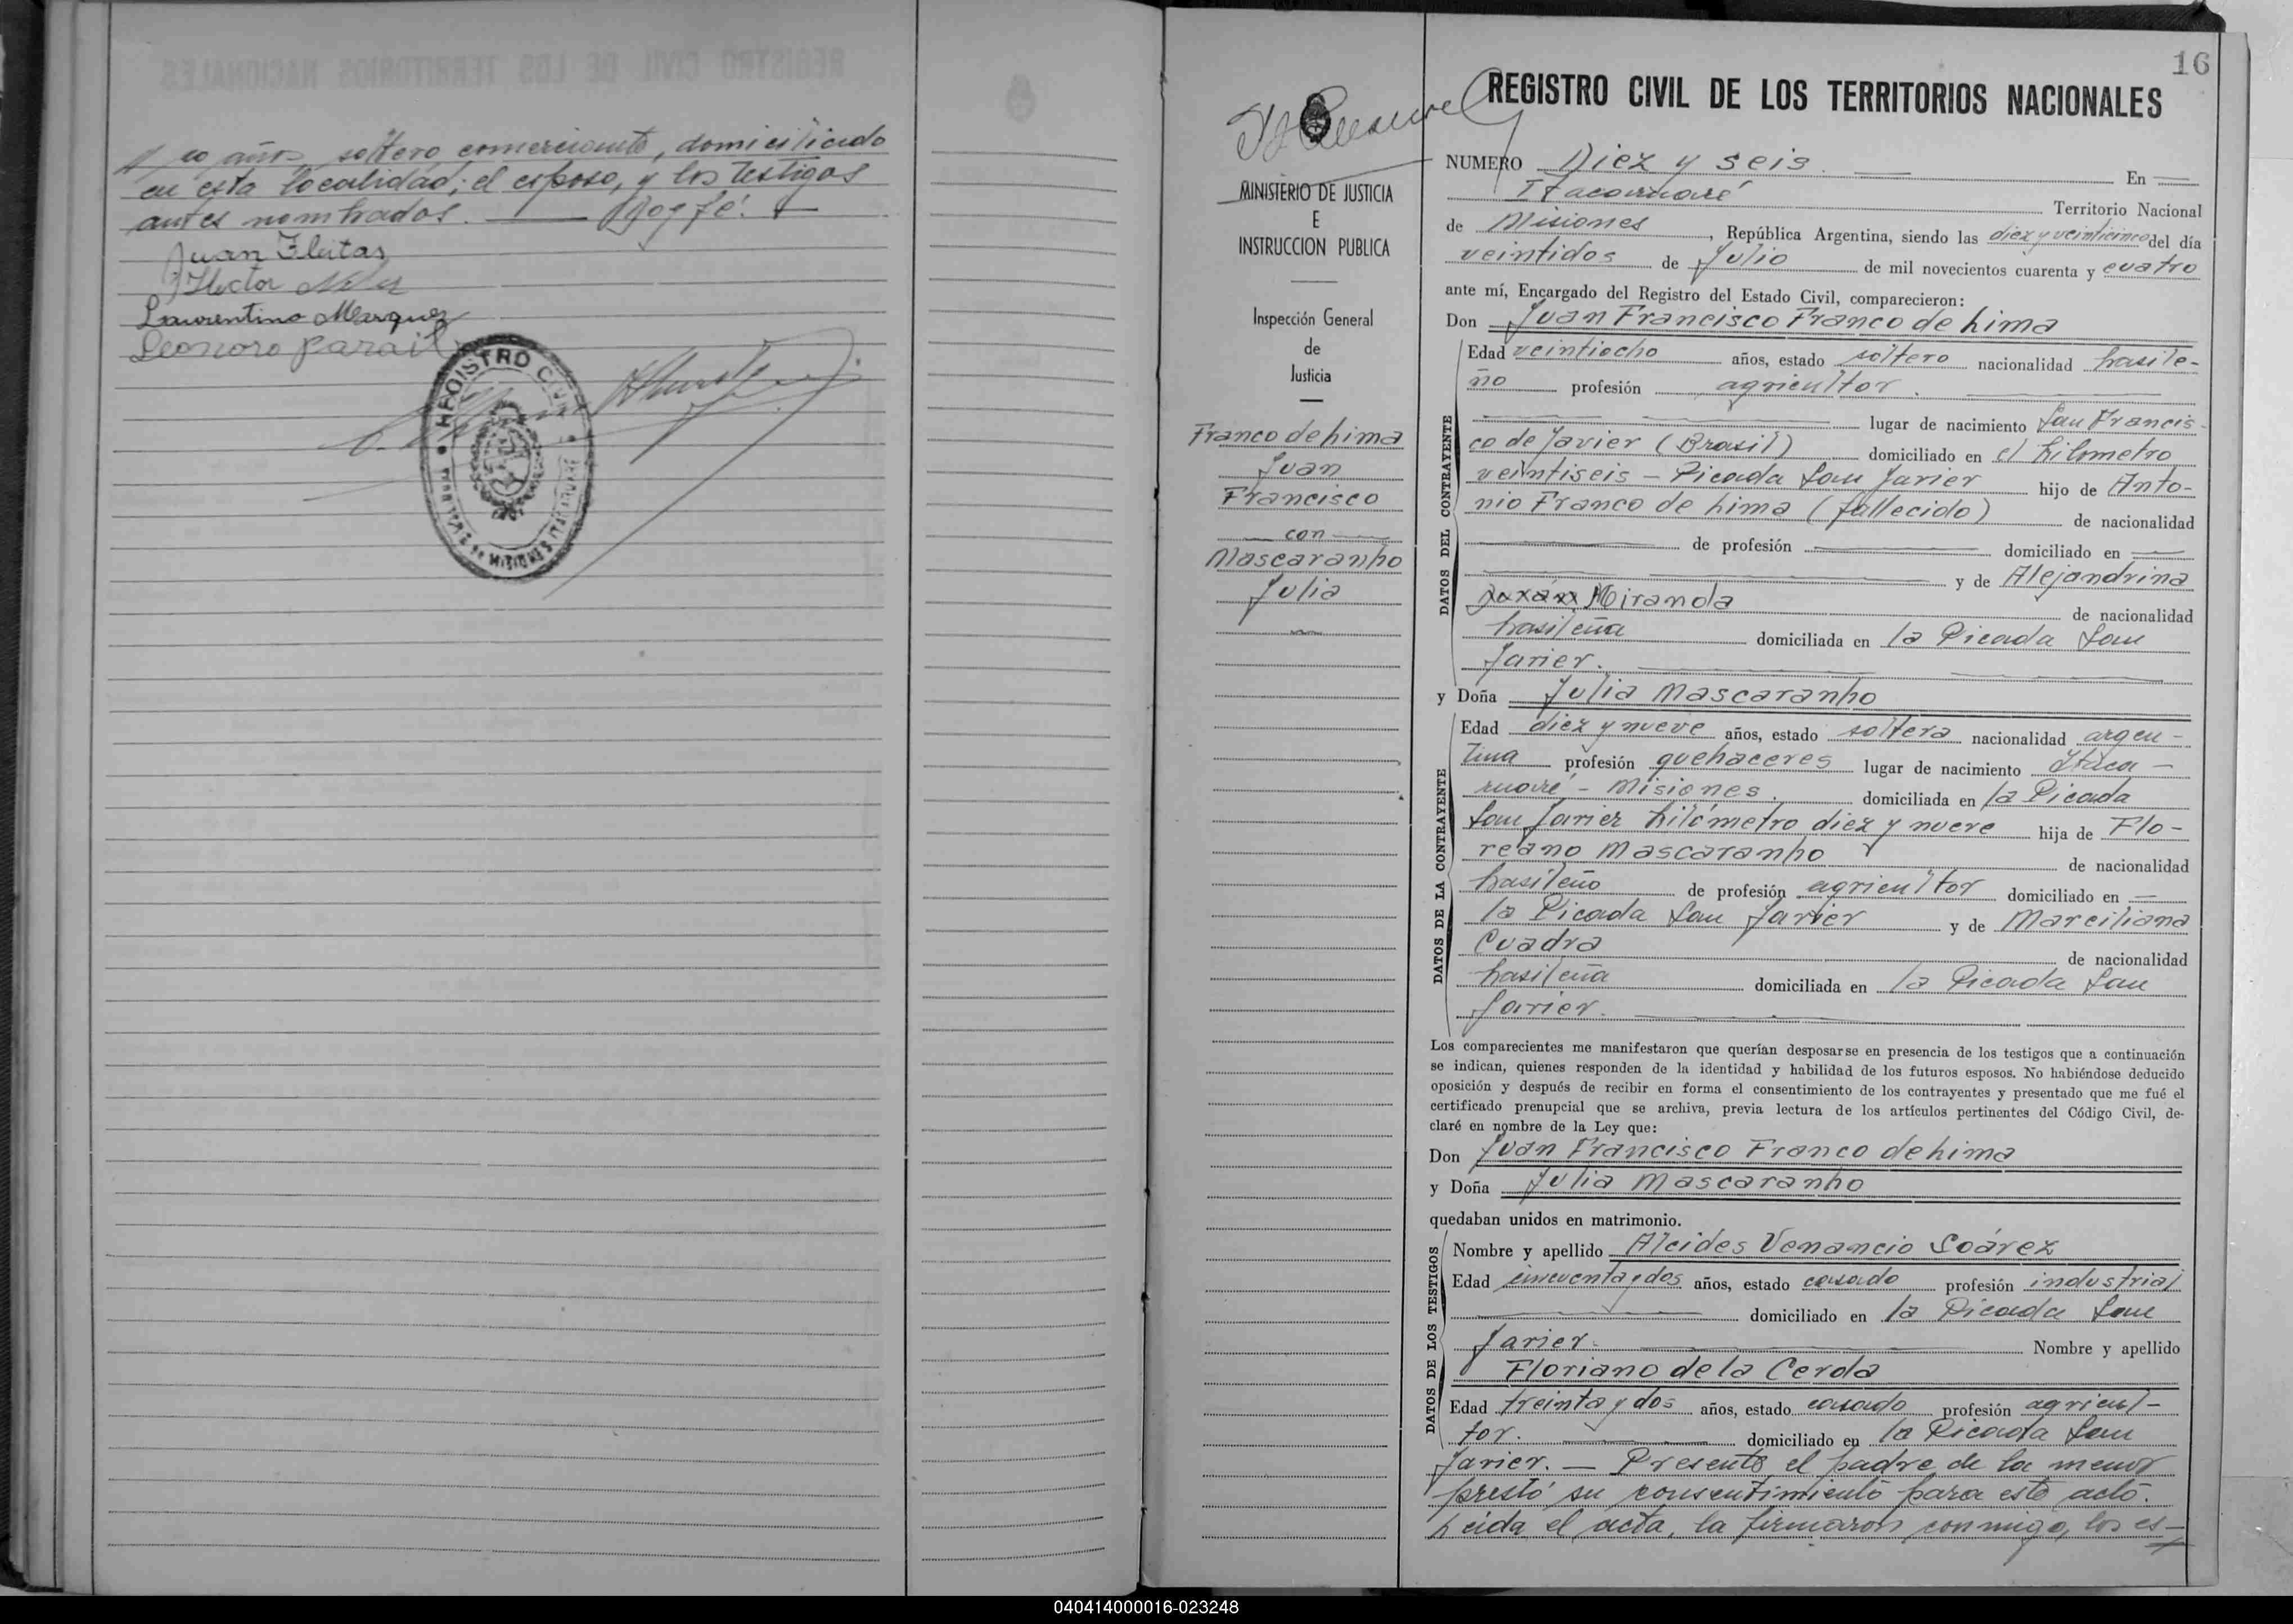 años, soltero, comerciante, domiciliado
en esta localidad; el esposo, y los testigos
antes nombrados. Doy fé.
Juan Fleitas
Hector
Laurentino Marquez
Leonoro
REGISTRO CIVIL
MISIONES
16
REGISTRO CIVIL DE LOS TERRITORIOS NACIONALES
MINISTERIO DE JUSTICIA
E
INSTRUCCION PUBLICA
Inspección General
de
Justicia
Franco de Lima
Juan
Francisco
con
Mascaranho
Julia
NUMERO Diez y seis. En
Itacaruaré Territorio Nacional
de Misiones, República Argentina, siendo las diez y veinticinco del día
veintidos de Julio de mil novecientos cuarenta y cuatro
ante mí, Encargado del Registro del Estado Civil, comparecieron:
Don Juan Francisco Franco de Lima
DATOS DEL CONTRAYENTE
Edad veintiocho años, estado soltero nacionalidad brasile-
ño profesión agricultor.
lugar de nacimiento San Francis-
co de Javier (Brasil) domiciliado en el kilometro
veintiseis - Picada San Javier hijo de Anto-
nio Franco de Lima (fallecido) de nacionalidad
de profesión domiciliado en
y de Alejandrina
Miranda de nacionalidad
brasileña domiciliada en la Picada San
Javier.
y Doña Julia Mascaranho
DATOS DE LA CONTRAYENTE
Edad diez y nueve años, estado soltera nacionalidad argen-
tina profesión quehaceres lugar de nacimiento Itaca-
ruaré - Misiones. domiciliada en la Picada
San Javier kilómetro diez y nueve hija de Flo-
reano Mascaranho de nacionalidad
brasileño de profesión agricultor domiciliado en
la Picada San Javier y de Marciliana
Cuadra de nacionalidad
brasileña domiciliada en la Picada San
Javier.
Los comparecientes me manifestaron que querían desposarse en presencia de los testigos que a continuación
se indican, quienes responden de la identidad y habilidad de los futuros esposos. No habiéndose deducido
oposición y después de recibir en forma el consentimiento de los contrayentes y presentado que me fué el
certificado prenupcial que se archiva, previa lectura de los artículos pertinentes del Código Civil, de-
claré en nombre de la Ley que:
Don Juan Francisco Franco de Lima
y Doña Julia Mascaranho
quedaban unidos en matrimonio.
DATOS DE LOS TESTIGOS
Nombre y apellido Alcides Venancio Soárez
Edad cincuenta y dos años, estado casado profesión industrial
domiciliado en la Picada San
Javier. Nombre y apellido
Floriano de la Cerda
Edad treinta y dos años, estado casado profesión agricul-
tor. domiciliado en la Picada San
Javier. — Presente el padre de la menor
prestó su consentimiento para este acto.
Leida el acta, la firmaron conmigo, los es-
040414000016-023248